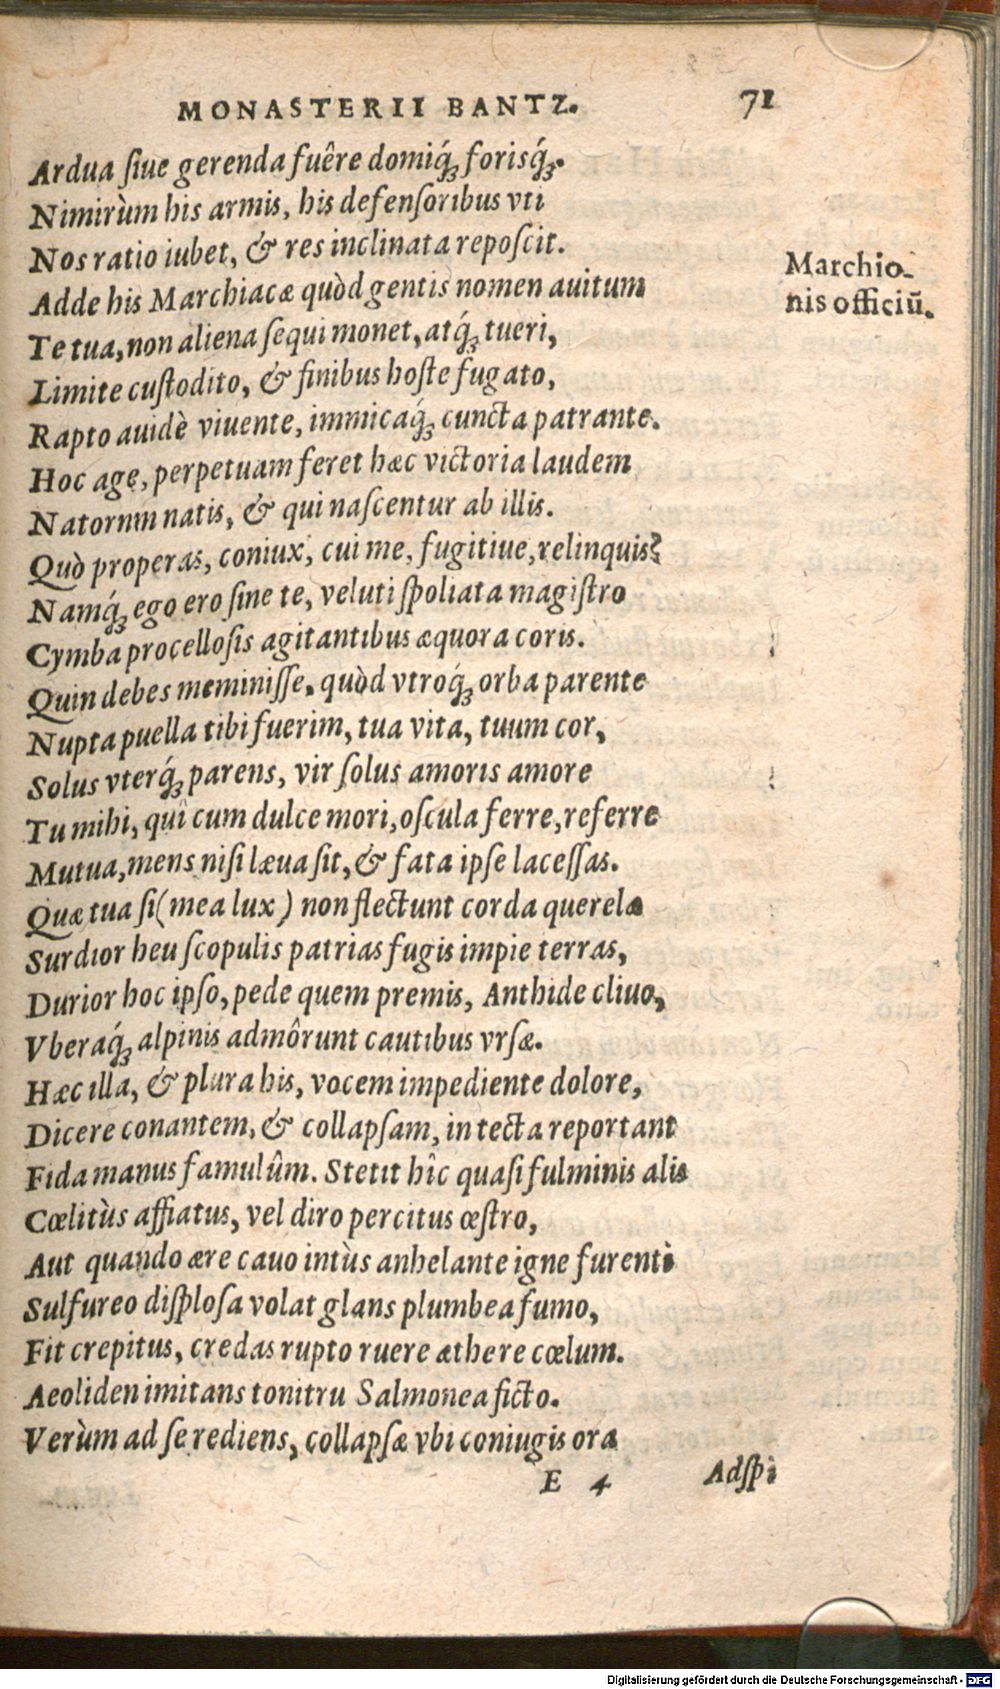 MONASTERII BANTZ. 71
Ardua ſiue gerenda fuêre domiq́ꝫ forisq́ꝫ.
Nimirùm his armis, his defenſoribus vti
Nos ratio iubet, & res inclinata repoſcit.
Adde his Marchiacæ quòd gentis nomen auitum
Marchio-
nis officiũ.
Te tua, non aliena ſequi monet, atq́ꝫ tueri,
Limite cuſtodito, & finibus hoſte fugato,
Rapto auidè viuente, immicaq́ꝫ cuncta patrante.
Hoc age, perpetuam feret hæc victoria laudem
Natornm natis, & qui naſcentur ab illis.
Quò properas, coniux, cui me, fugitiue, relinquis?
Namq́ꝫ ego ero ſine te, veluti ſpoliata magiſtro
Cymba procelloſis agitantibus æquora coris.
Quin debes meminiſſe, quòd vtroq́ꝫ orba parente
Nupta puella tibi fuerim, tua vita, tuum cor,
Solus vterq́ꝫ parens, vir ſolus amoris amore
Tu mihi, quî cum dulce mori, oſcula ferre, referre
Mutua, mens niſi læua ſit, & fata ipſe laceſſas.
Quæ tua ſi (mea lux) non flectunt corda querelæ
Surdior heu ſcopulis patrias fugis impie terras,
Durior hoc ipſo, pede quem premis, Anthide cliuo,
Vberaq́ꝫ alpinis admôrunt cautibus vrſæ.
Hæc illa, & plura his, vocem impediente dolore,
Dicere conantem, & collapſam, in tecta reportant
Fida manus famulûm. Stetit hîc quaſi fulminis alis
Cœlitùs affiatus, vel diro percitus œſtro,
Aut quando ære cauo intùs anhelante igne furenti
Sulfureo diſploſa volat glans plumbea fumo,
Fit crepitus, credas rupto ruere æthere cœlum.
Aeoliden imitans tonitru Salmonea ficto.
Verùm ad ſe rediens, collapſæ vbi coniugis ora
E 4 Adſpi
Digitalisierung gefördert durch die Deutsche Forschungsgemeinschaft - DFG